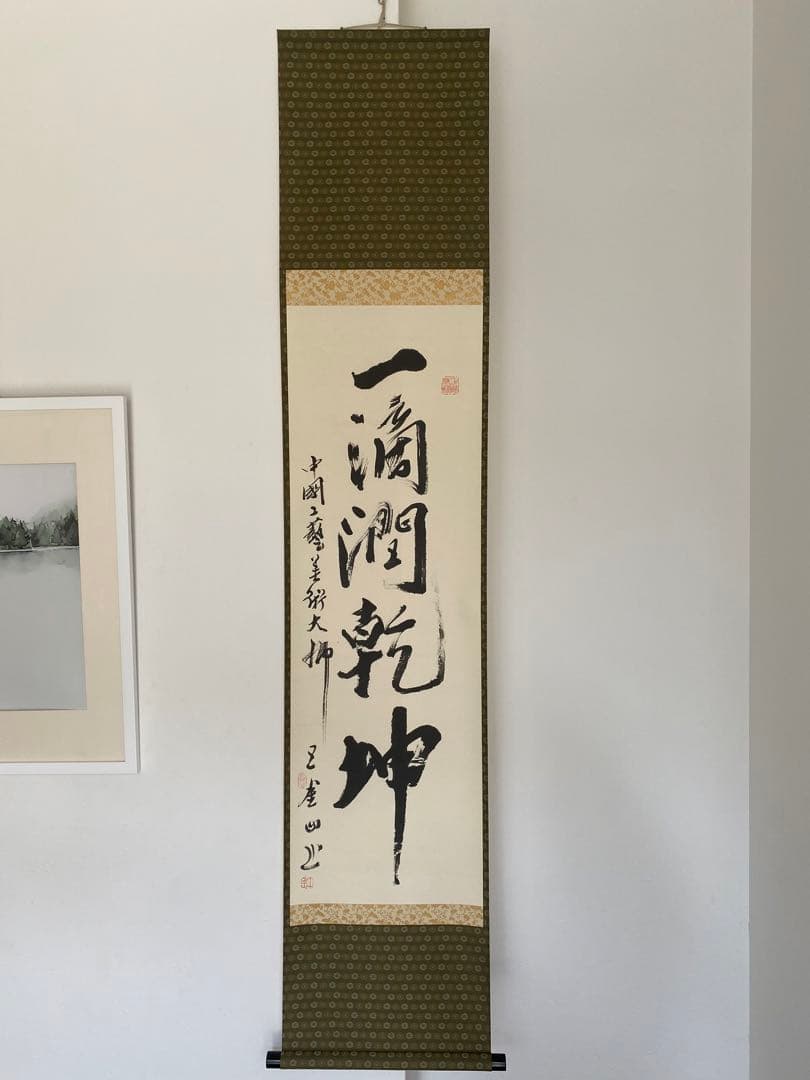 一滴潤乾坤
中國工藝美術大師
王金山书